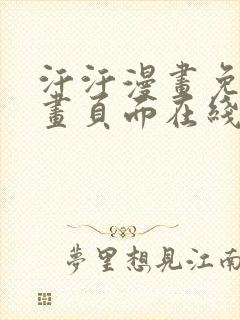 汗汗漫畫免
畫頁面在綫
夢里想見江南